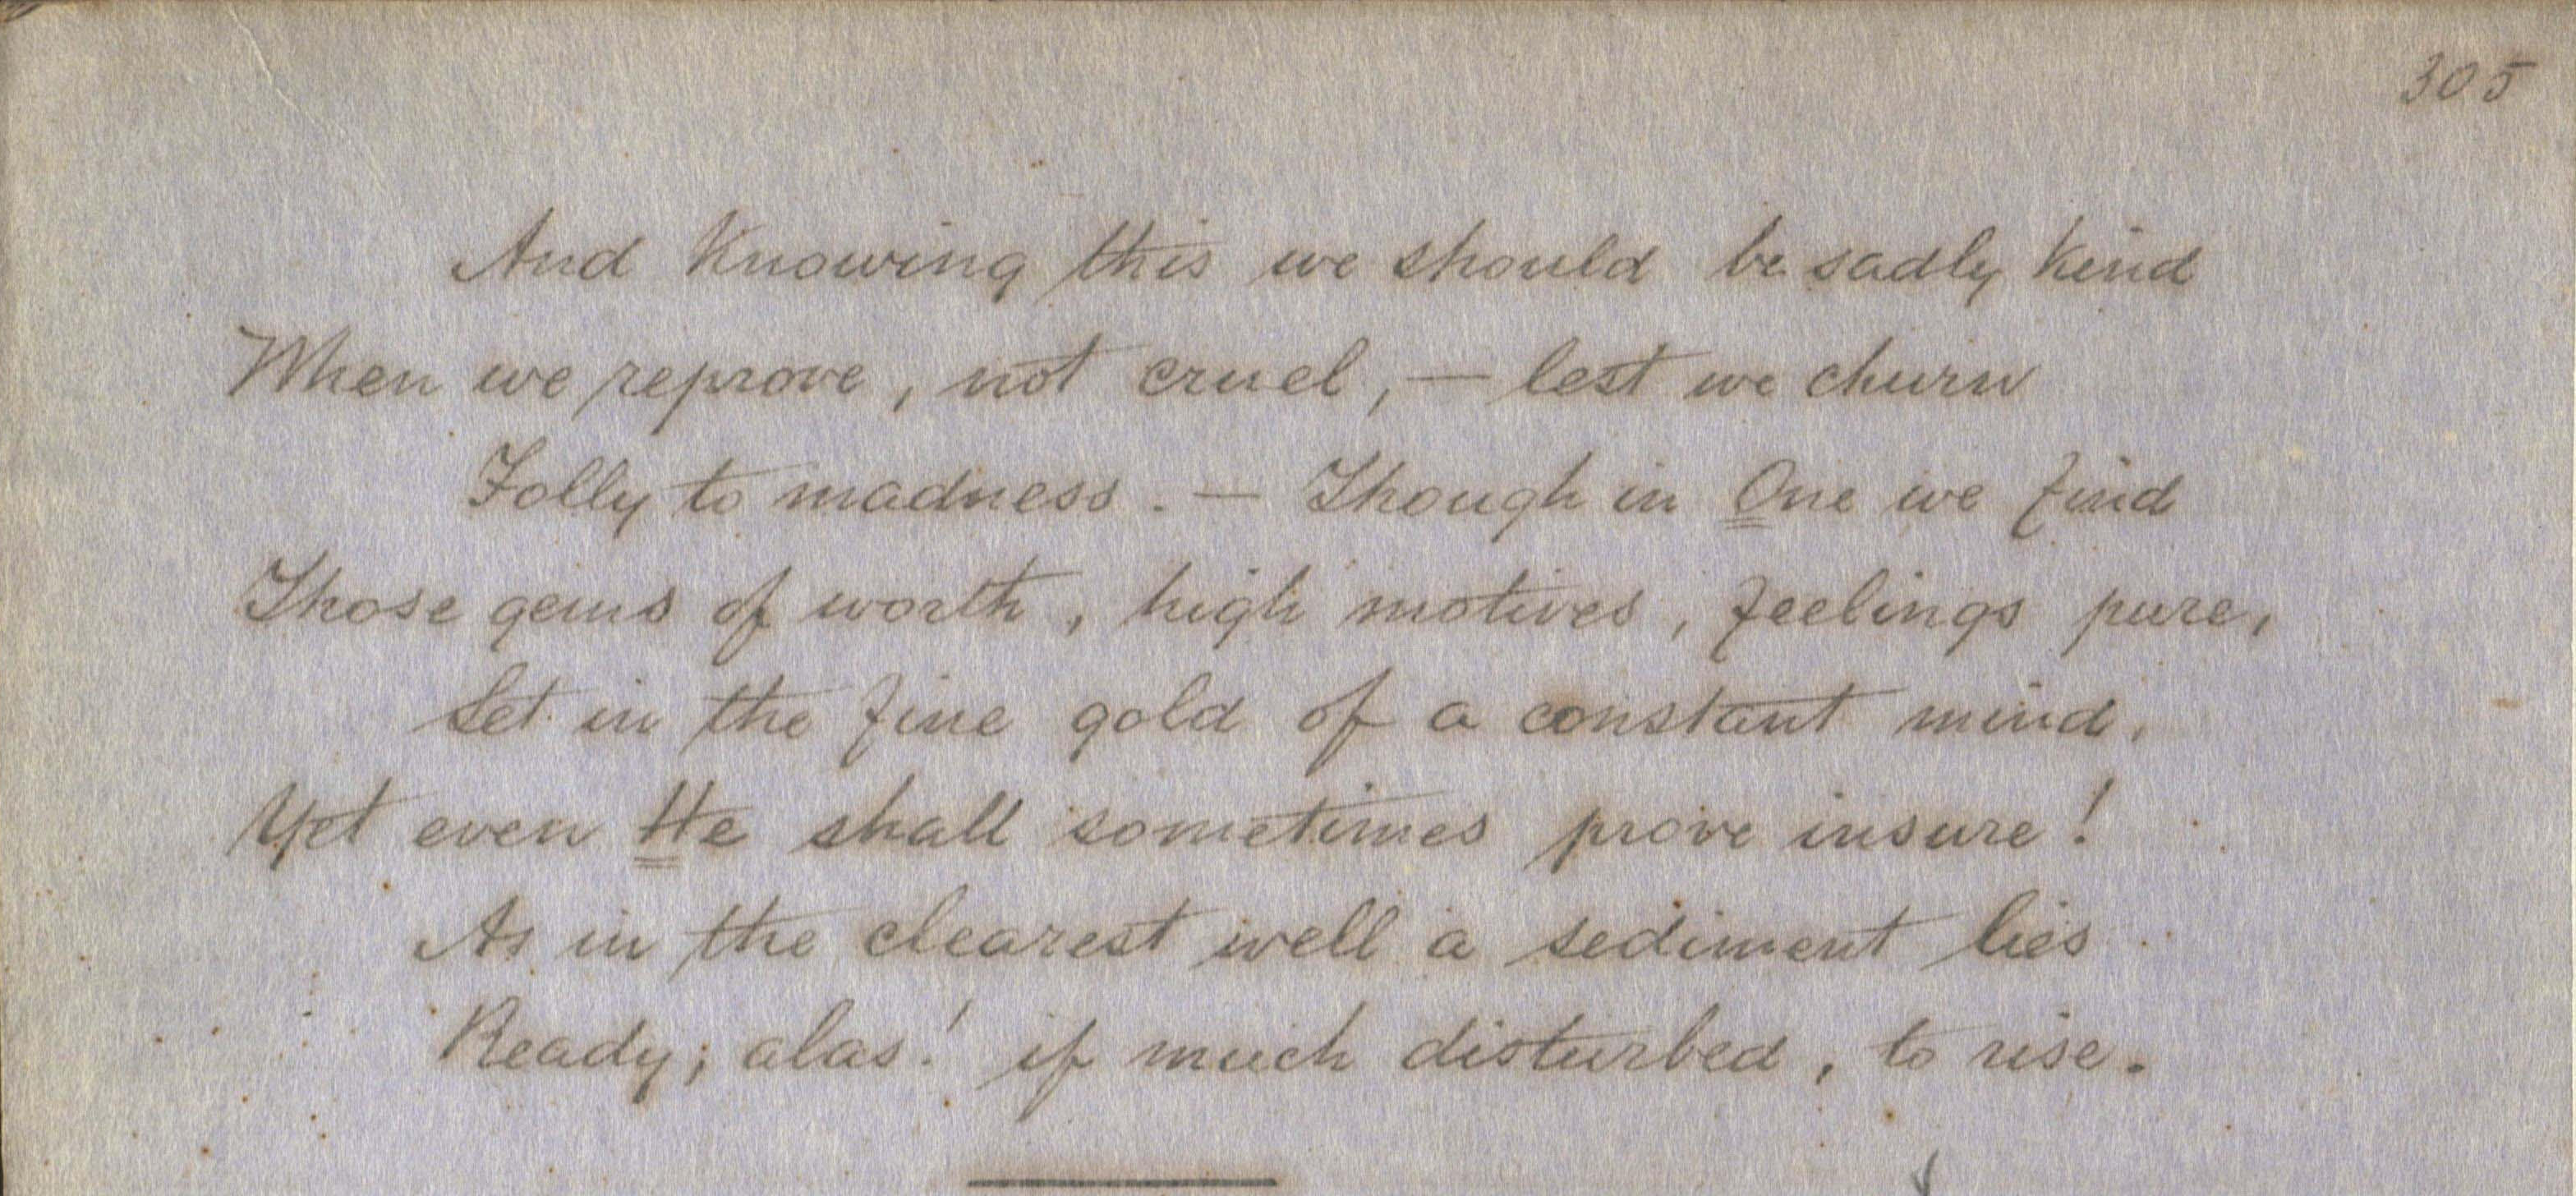 305
And Knowing this we should be sadly kind
When we reprove, not cruel, — lest we churn
Folly to madness. — Though in One we find
Those gems of worth, high motives, feelings pure,
Set in the fine gold of a constant mind,
Yet even He shall sometimes prove insure!
As in the clearest well a sediment lies
Ready; alas! if much disturbed, to rise.